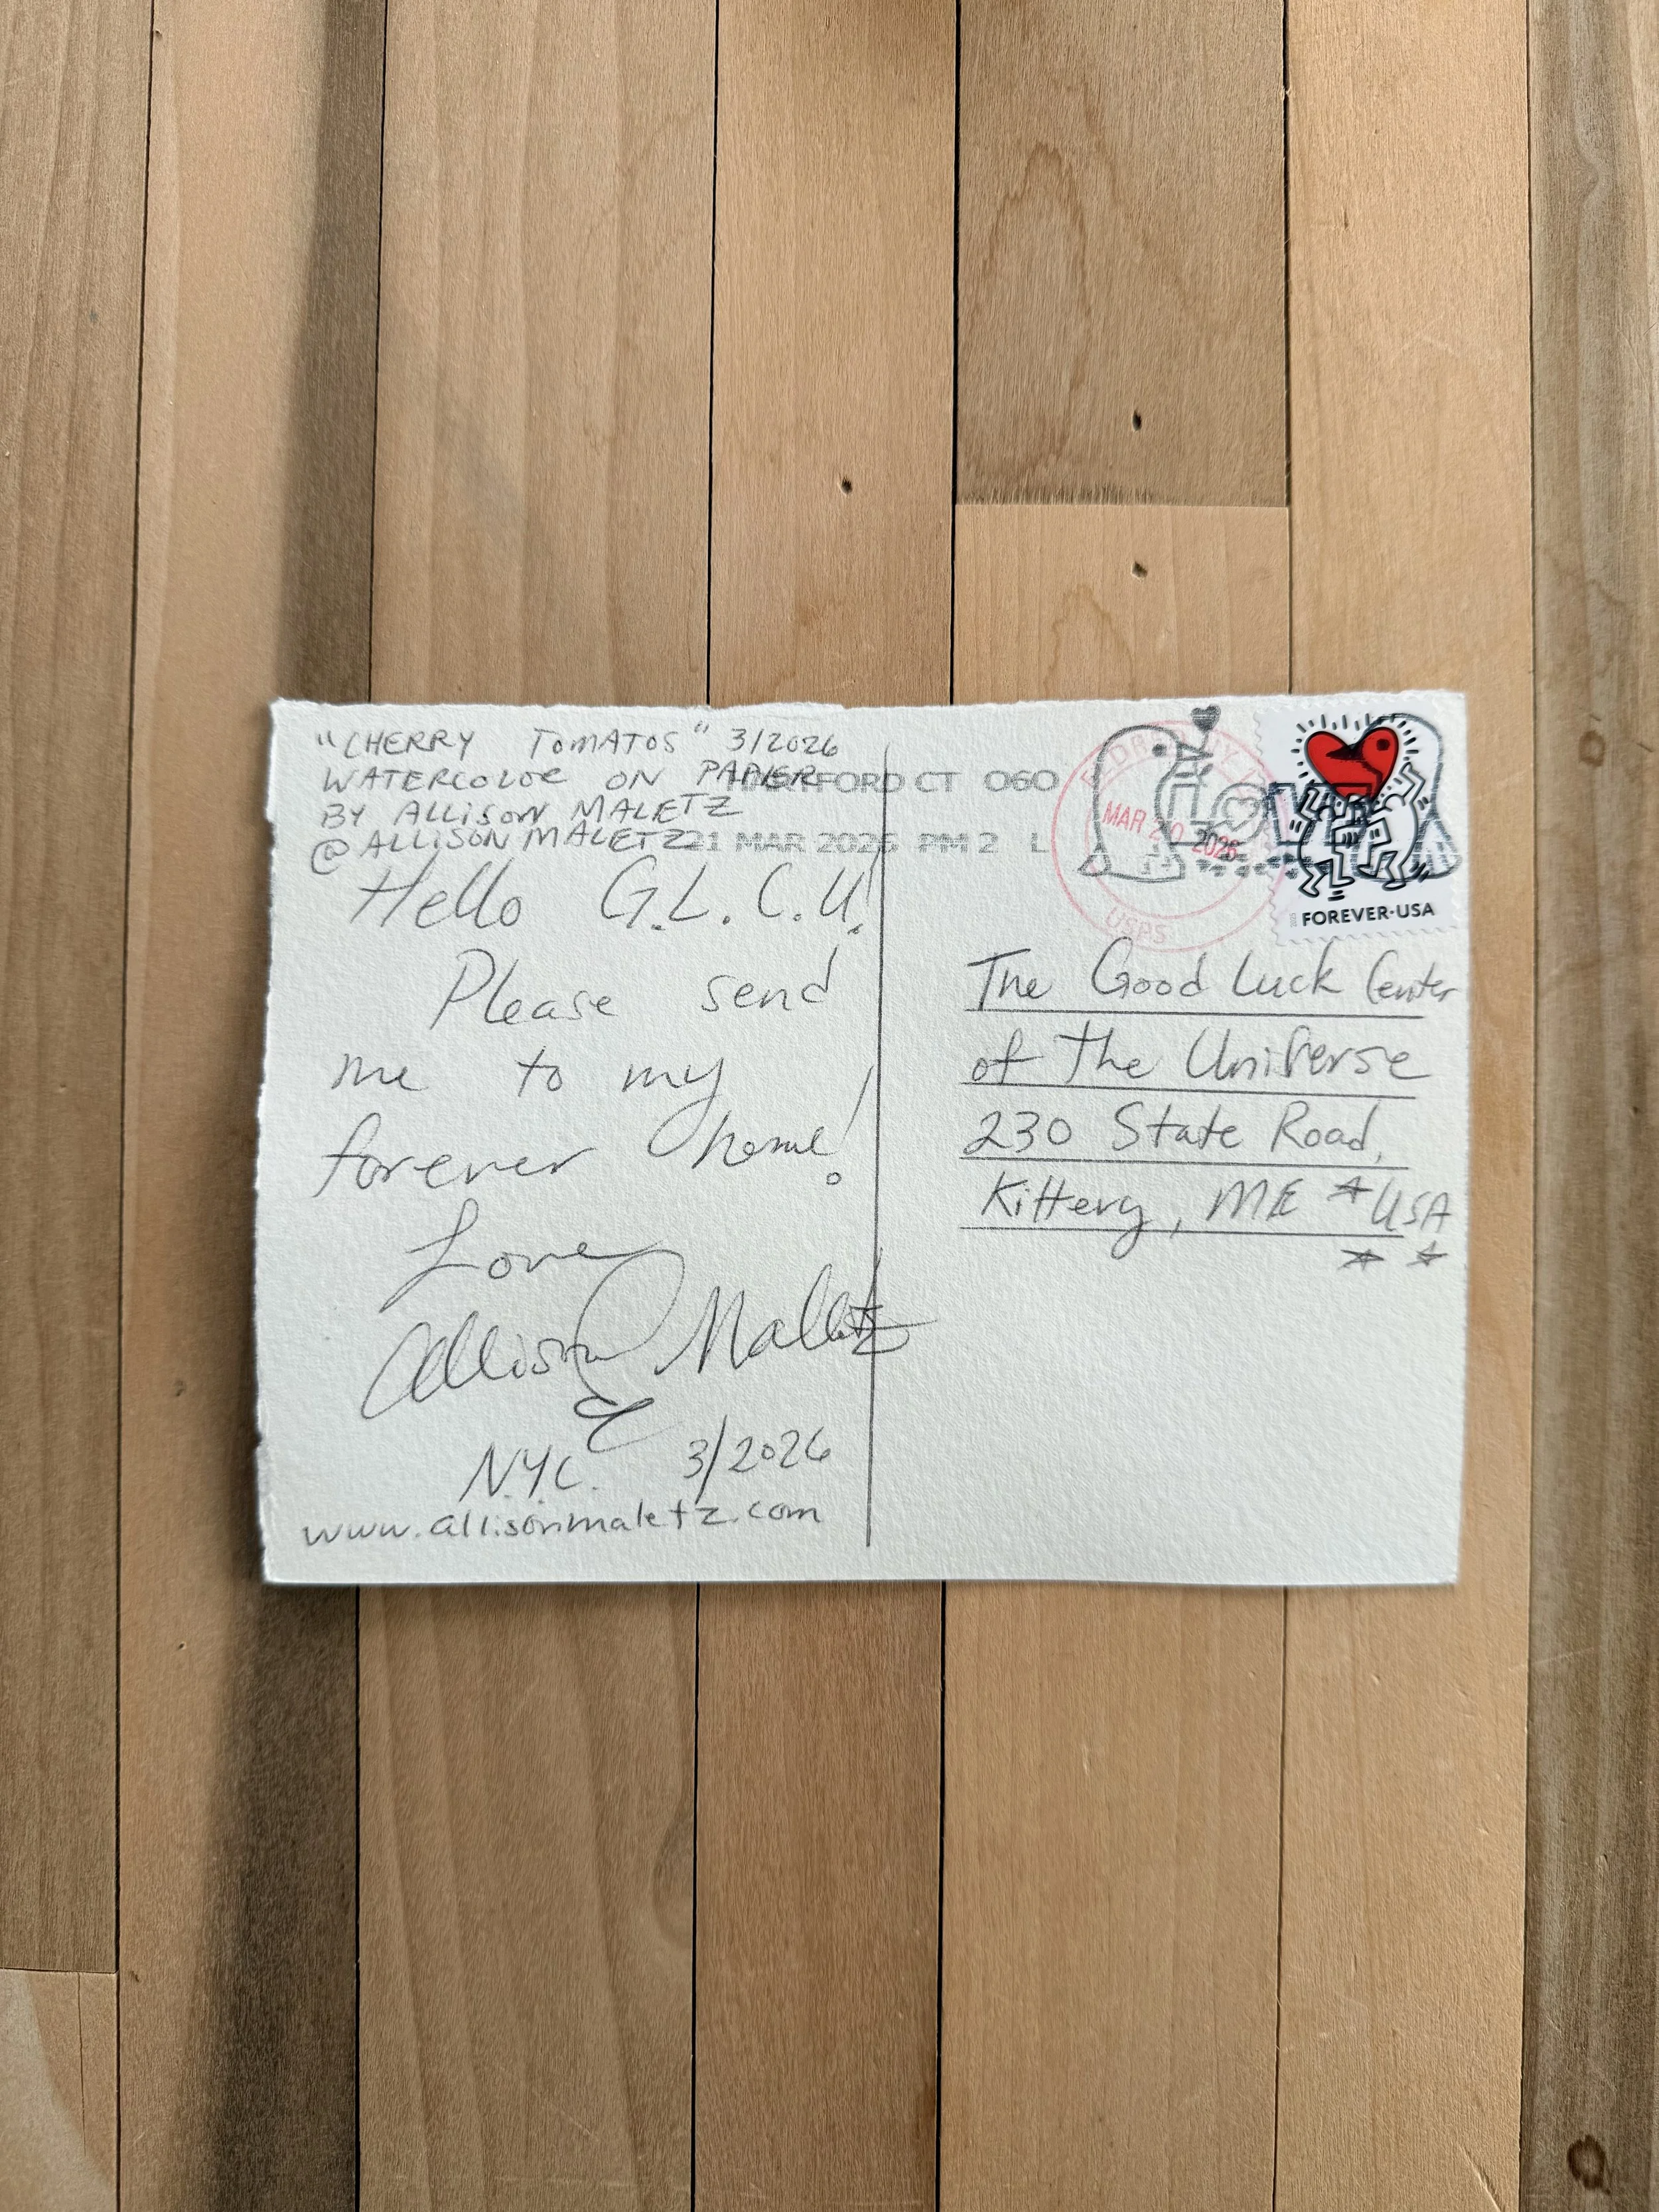 "CHERRY TOMATOS" 3/2026
WATERCOLOR ON PAPIER
BY ALLISON MALETZ
@ALLISONMALETZ
Hello G.L.C.U!
Please send
me to my
forever home!
Love
Allison Maletz
N.Y.C. 3/2026
www.allisonmaletz.com
HARTFORD CT 060
21 MAR 2026 PM 2 L
MAR 20 2026
USPS
FOREVER·USA
The Good Luck Center
of the Universe
230 State Road,
Kittery, ME USA